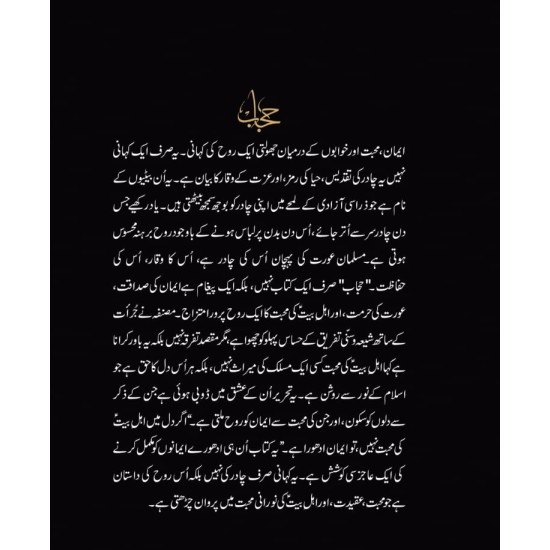 حجاب
ایمان، محبت اور خوابوں کے درمیان جھولتی ایک روح کی کہانی۔ یہ صرف ایک کہانی
نہیں یہ چادر کی تقدیس، حیا کی رمز، اور عزت کے وقار کا بیان ہے۔ یہ اُن بیٹیوں کے
نام ہے جو ذرا سی آزادی کے لمحے میں اپنی چادر کو بوجھ سمجھ بیٹھتی ہیں۔ یاد رکھیے جس
دن چادر سر سے اُتر جائے، اُس دن بدن پر لباس ہونے کے باوجود روح برہنہ محسوس
ہوتی ہے۔ مسلمان عورت کی پہچان اُس کی چادر ہے، اُس کا وقار، اُس کی
حفاظت۔ "حجاب" صرف ایک کتاب نہیں، بلکہ ایک پیغام ہے ایمان کی صداقت،
عورت کی حرمت، اور اہل بیتؑ کی محبت کا ایک روح پرور امتزاج۔ مصنفہ نے جُرأت
کے ساتھ شیعہ و سنّی تفریق کے حساس پہلو کو چھوا ہے، مگر مقصد تفرقہ نہیں بلکہ یہ باور کرانا
ہے کہ اہل بیتؑ کی محبت کسی ایک مسلک کی میراث نہیں، بلکہ ہر اُس دل کا حق ہے جو
اسلام کے نور سے روشن ہے۔ یہ تحریر اُن کے عشق میں ڈوبی ہوئی ہے جن کے ذکر
سے دلوں کو سکون، اور جن کی محبت سے ایمان کو روح ملتی ہے۔ "اگر دل میں اہل بیتؑ
کی محبت نہیں، تو ایمان ادھورا ہے۔" یہ کتاب اُن ہی ادھورے ایمانوں کو مکمل کرنے
کی ایک عاجز سی کوشش ہے۔ یہ کہانی صرف چادر کی نہیں بلکہ اُس روح کی داستان
ہے جو محبت، عقیدت، اور اہل بیتؑ کی نورانی محبت میں پروان چڑھتی ہے۔